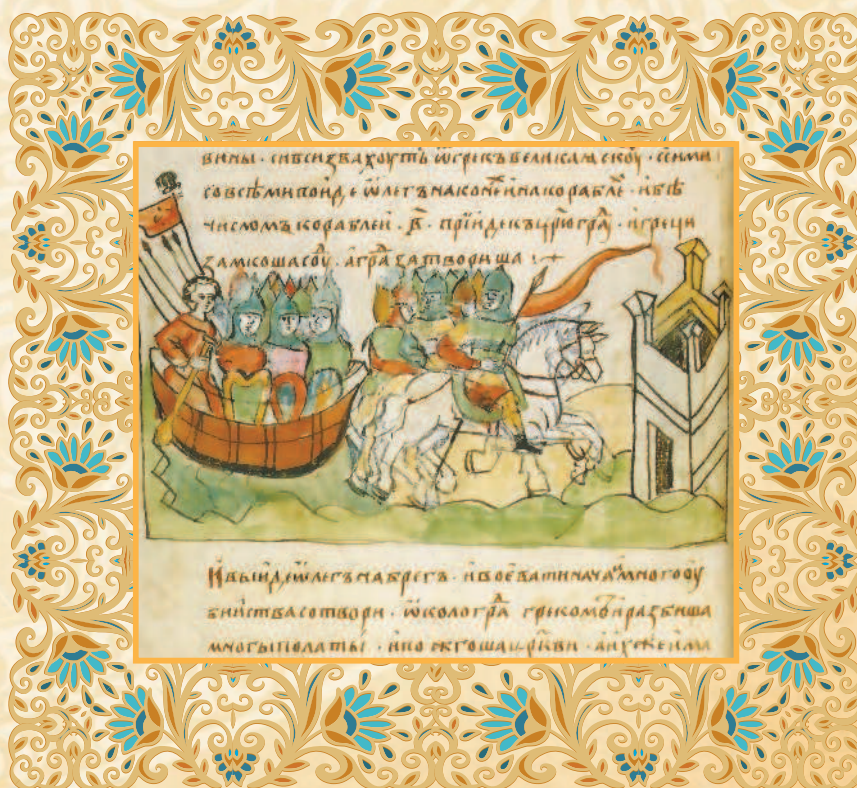 вины · си вси звахоуть ѿ грекъ великаꙗ скоу · сѣми
со всѣми поиде ѡлегъ на конеи и на кораблѣ · и бѣ
числомъ кораблеи · в҃ · прїиде къ црюграⷣ · и греци
замкоша соуⷣ · а граⷣ затвориша
И выиде ѡлегъ на брегъ · и воевати нача много оу
бииства сотвори · ѡколо граⷣ грекомъ и разбиша
многы полаты · и пожгоша цркви · а ихже има